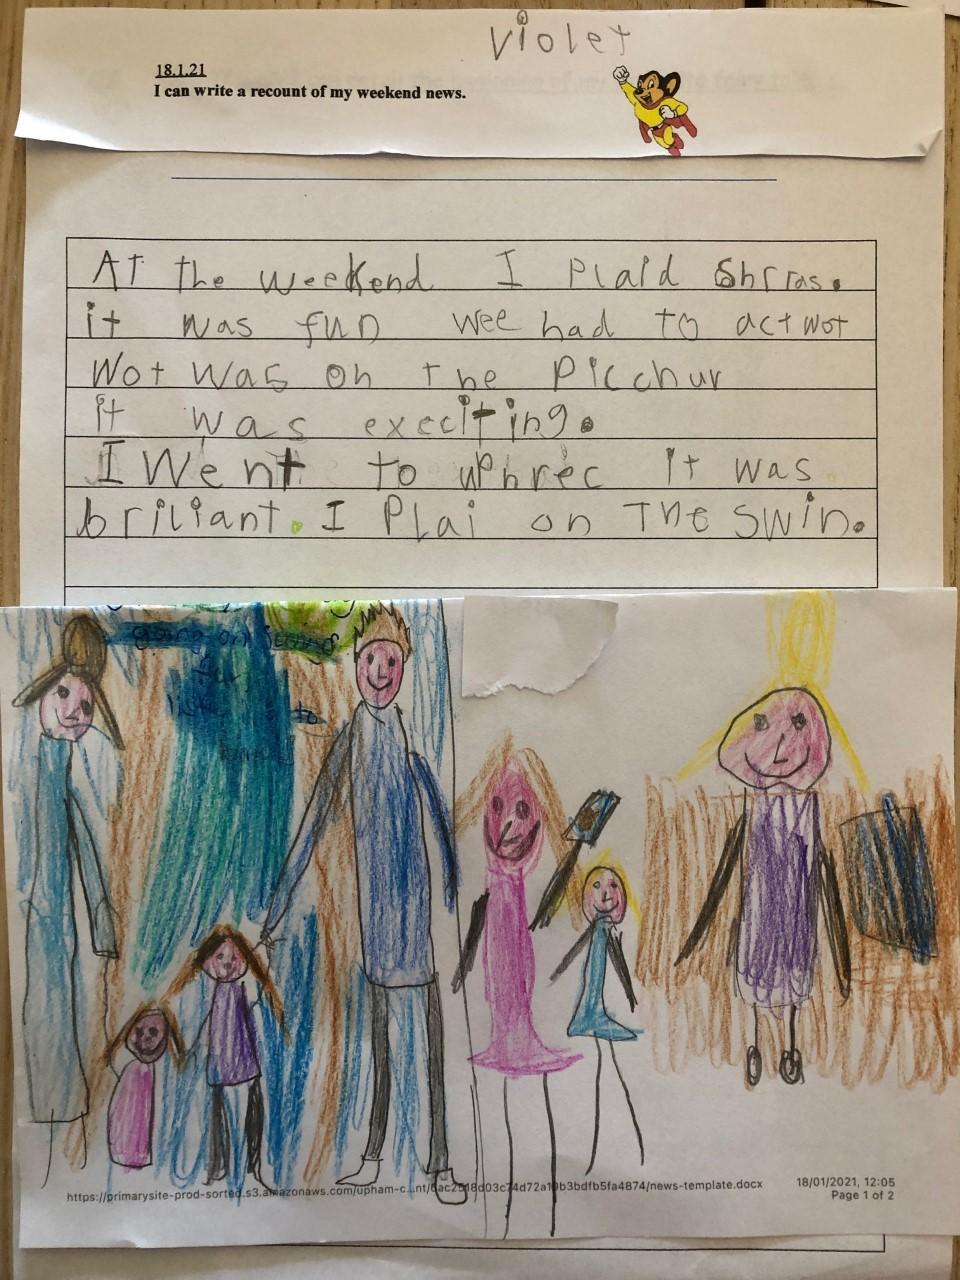 Violet
18.1.21
I can write a recount of my weekend news.
At the weekend I Plaid Shrras.
it was fun wee had to act wot
Wot was on the Picchur
it was execiting.
I Went to uphrec it was
briliant. I Plai on The swin.
going on
to
https://primarysite-prod-sorted.s3.amazonaws.com/upham-c...nt/6ac2518d03c74d72a19b3bdfb5fa4874/news-template.docx
18/01/2021, 12:05
Page 1 of 2